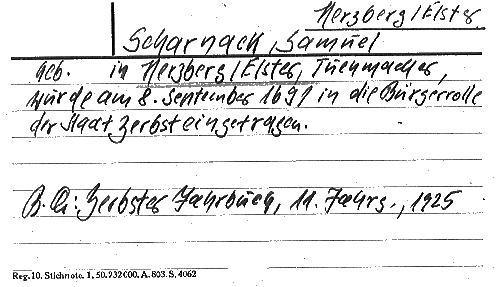 Herzberg/Elster
Scharnack, Samuel
geb. in Herzberg/Elster, Tuchmacher,
wurde am 8. September 1691 in die Bürgerrolle
der Stadt Zerbst eingetragen.
B. Qu: Zerbster Jahrbuch, 11. Jahrg., 1925
Reg. 10. Stichnote. 1, 50. 232 000. A. 803. S. 4062